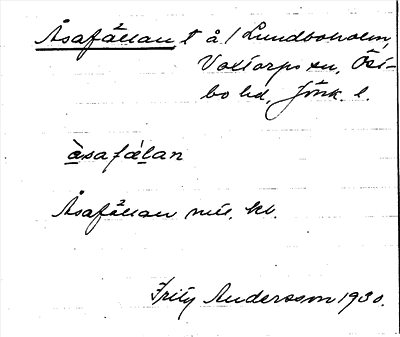 Åsafällan, t å / Lundboholm,
Voxtorps sn, Öst-
bo hd, Jönk. l.
àsafälan
Åsafällan
Fritz Andersson 1930.